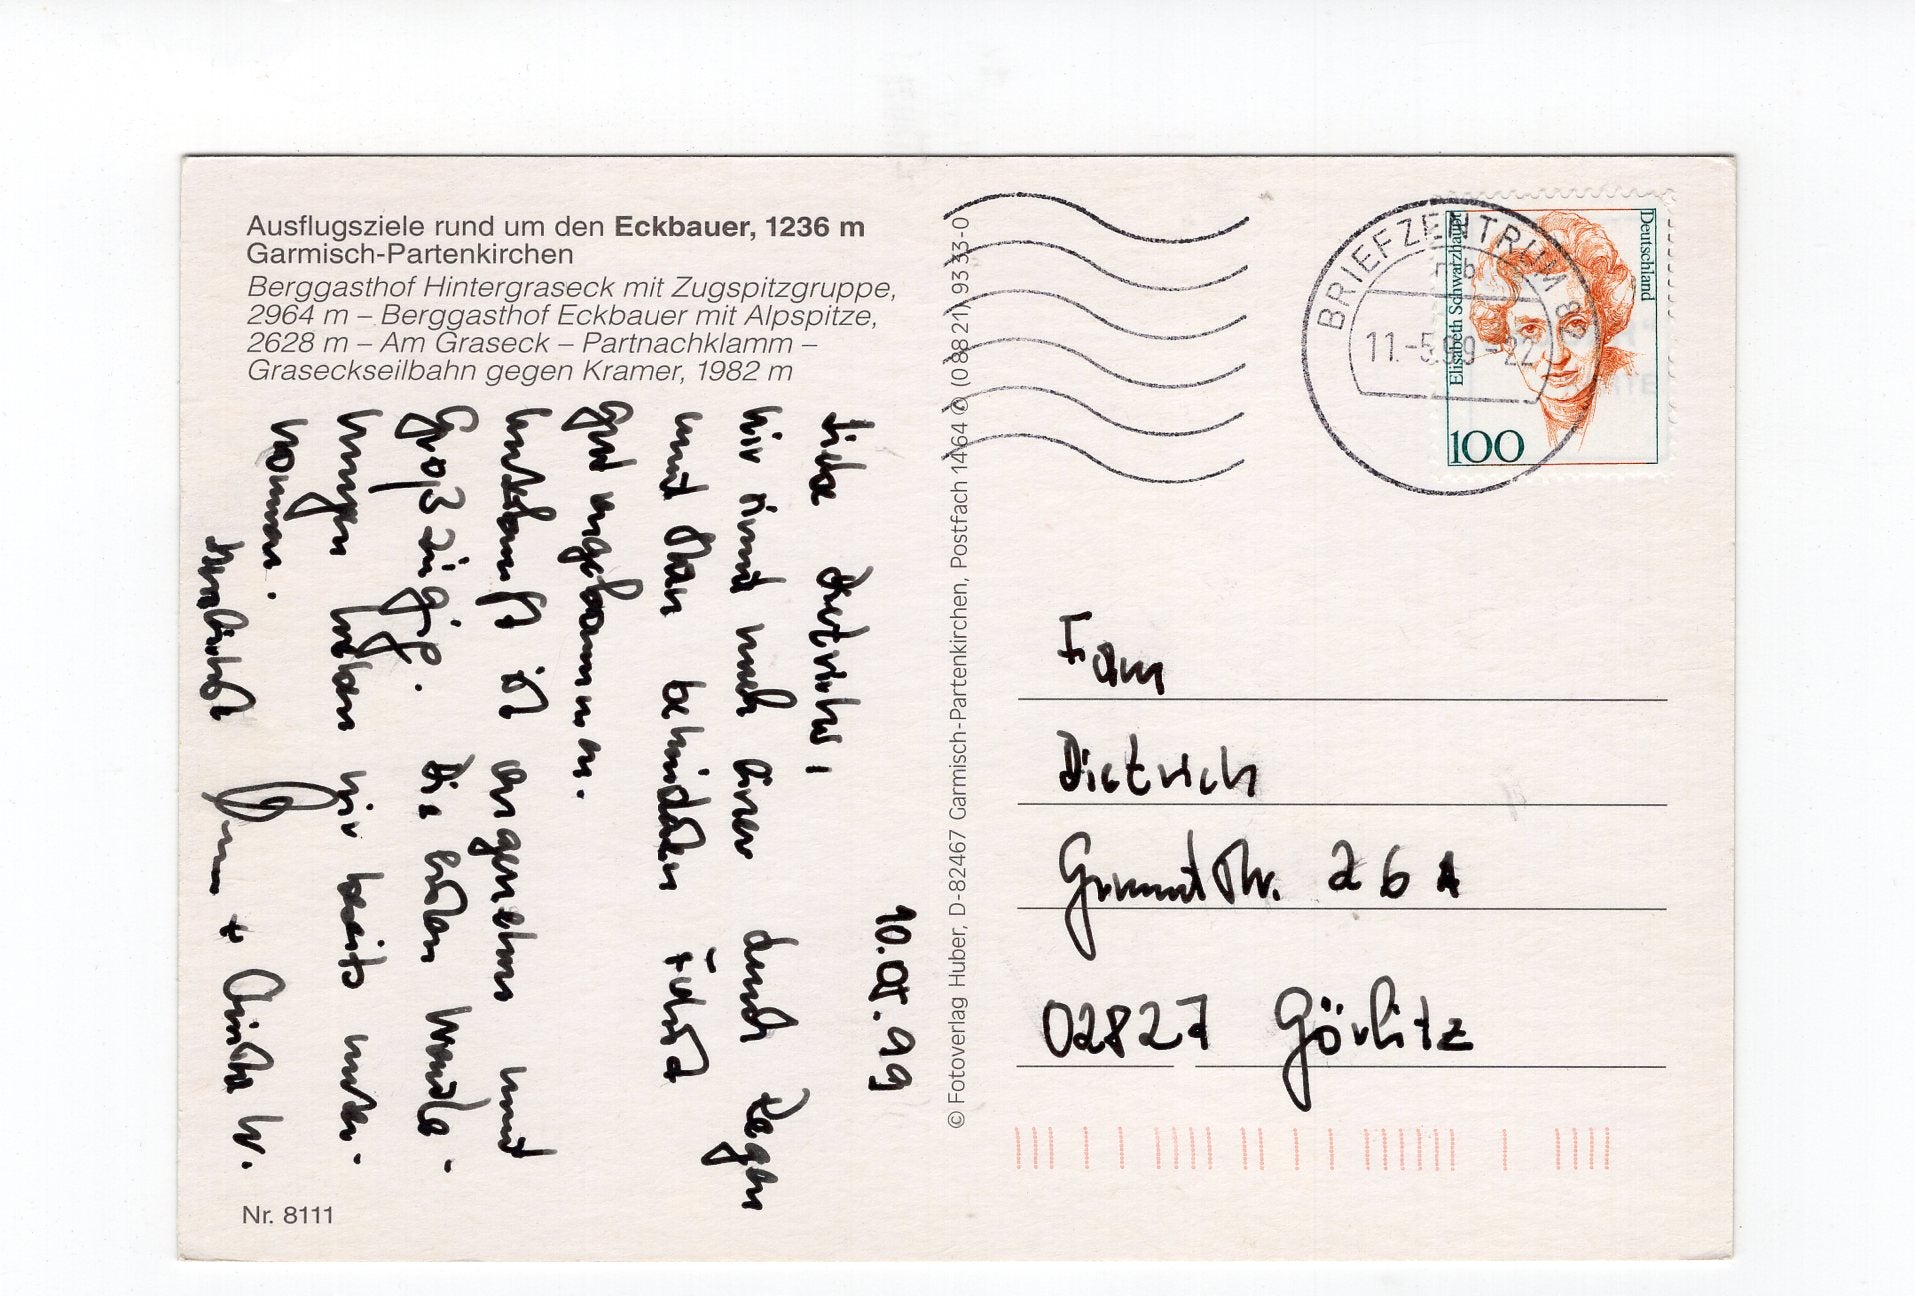 Ausflugsziele rund um den Eckbauer, 1236 m
Garmisch-Partenkirchen
Berggasthof Hintergraseck mit Zugspitzgruppe,
2964 m – Berggasthof Eckbauer mit Alpspitze,
2628 m – Am Graseck – Partnachklamm –
Graseckseilbahn gegen Kramer, 1982 m
10.05.99
Liebe Dietrichs,
wir sind nach einer durch Regen
und Stau behinderten Fahrt
gut angekommen.
Unterkunft ist angenehm und
großzügig. Die ersten Wande-
rungen haben wir bereits unter-
nommen.
Herzlichst
+ W.
Nr. 8111
© Fotoverlag Huber, D-82467 Garmisch-Partenkirchen, Postfach 1464 ✆ (0 88 21) 93 33-0
BRIEFZENTRUM 82
mb
11.-5.99-22
Elisabeth Schwarzhaupt
Deutschland
100
Fam
Dietrich
26 A
02827 Görlitz